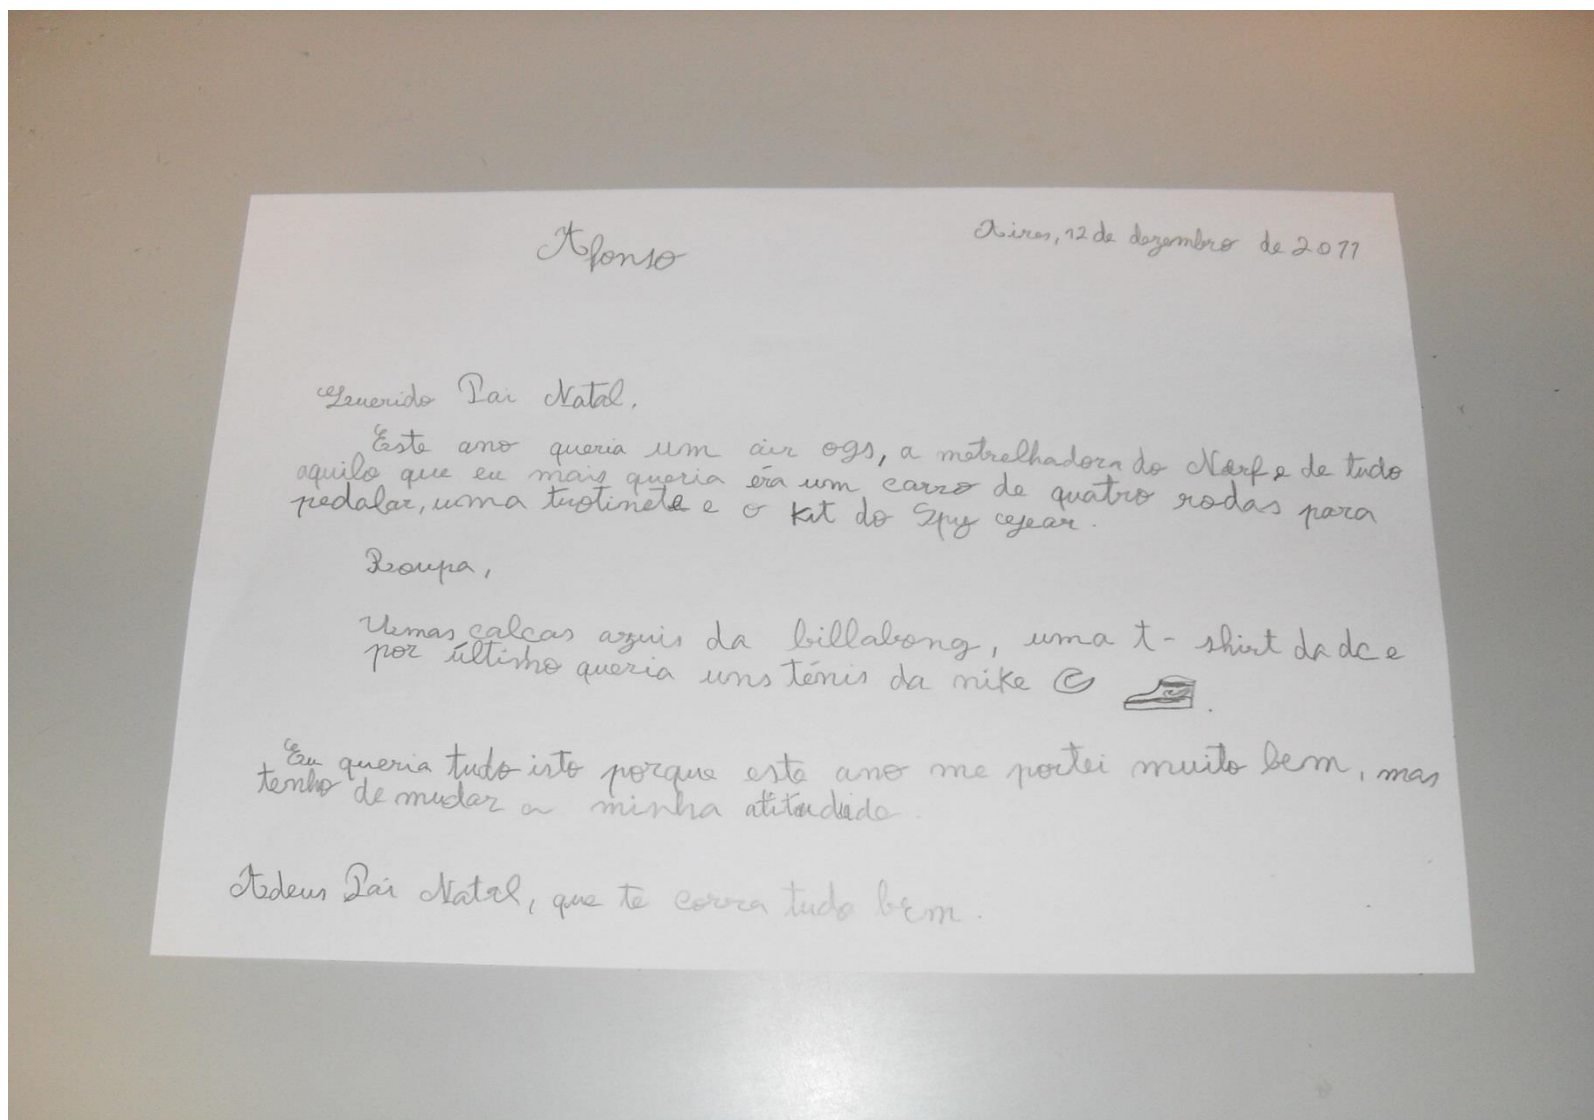 Afonso
Aires, 12 de dezembro de 2011
Querido Pai Natal,
Este ano queria um air ogs, a metrelhadora do Nerf e de tudo
aquilo que eu mais queria éra um carro de quatro rodas para
pedalar, uma trotinete e o kit do Spy gear.
Roupa,
Umas calcas azuis da billabong, uma t-shirt da dc e
por último queria uns ténis da nike
Eu queria tudo isto porque este ano me portei muito bem, mas
tenho de mudar a minha
Adeus Pai Natal, que te corra tudo bem.